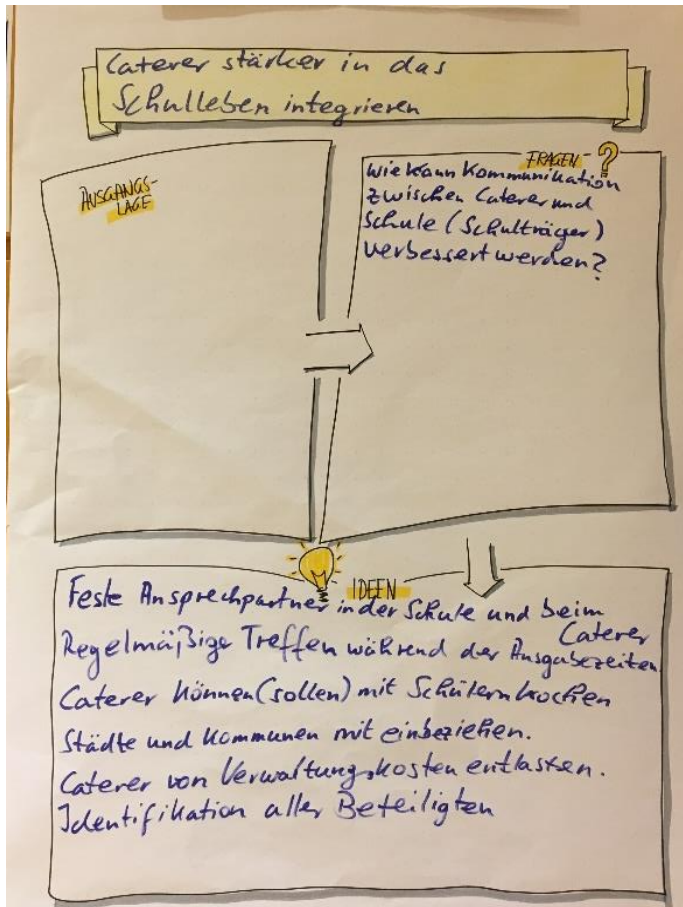 Caterer stärker in das
Schulleben integrieren
AUSGANGS-
LAGE
FRAGEN ?
Wie kann Kommunikation
zwischen Caterer und
Schule (Schulträger)
verbessert werden?
IDEEN
Feste Ansprechpartner in der Schule und beim
Caterer
Regelmäßige Treffen während der Ausgabezeiten
Caterer können (sollen) mit Schülern kochen
Städte und Kommunen mit einbeziehen.
Caterer von Verwaltungskosten entlasten.
Identifikation aller Beteiligten